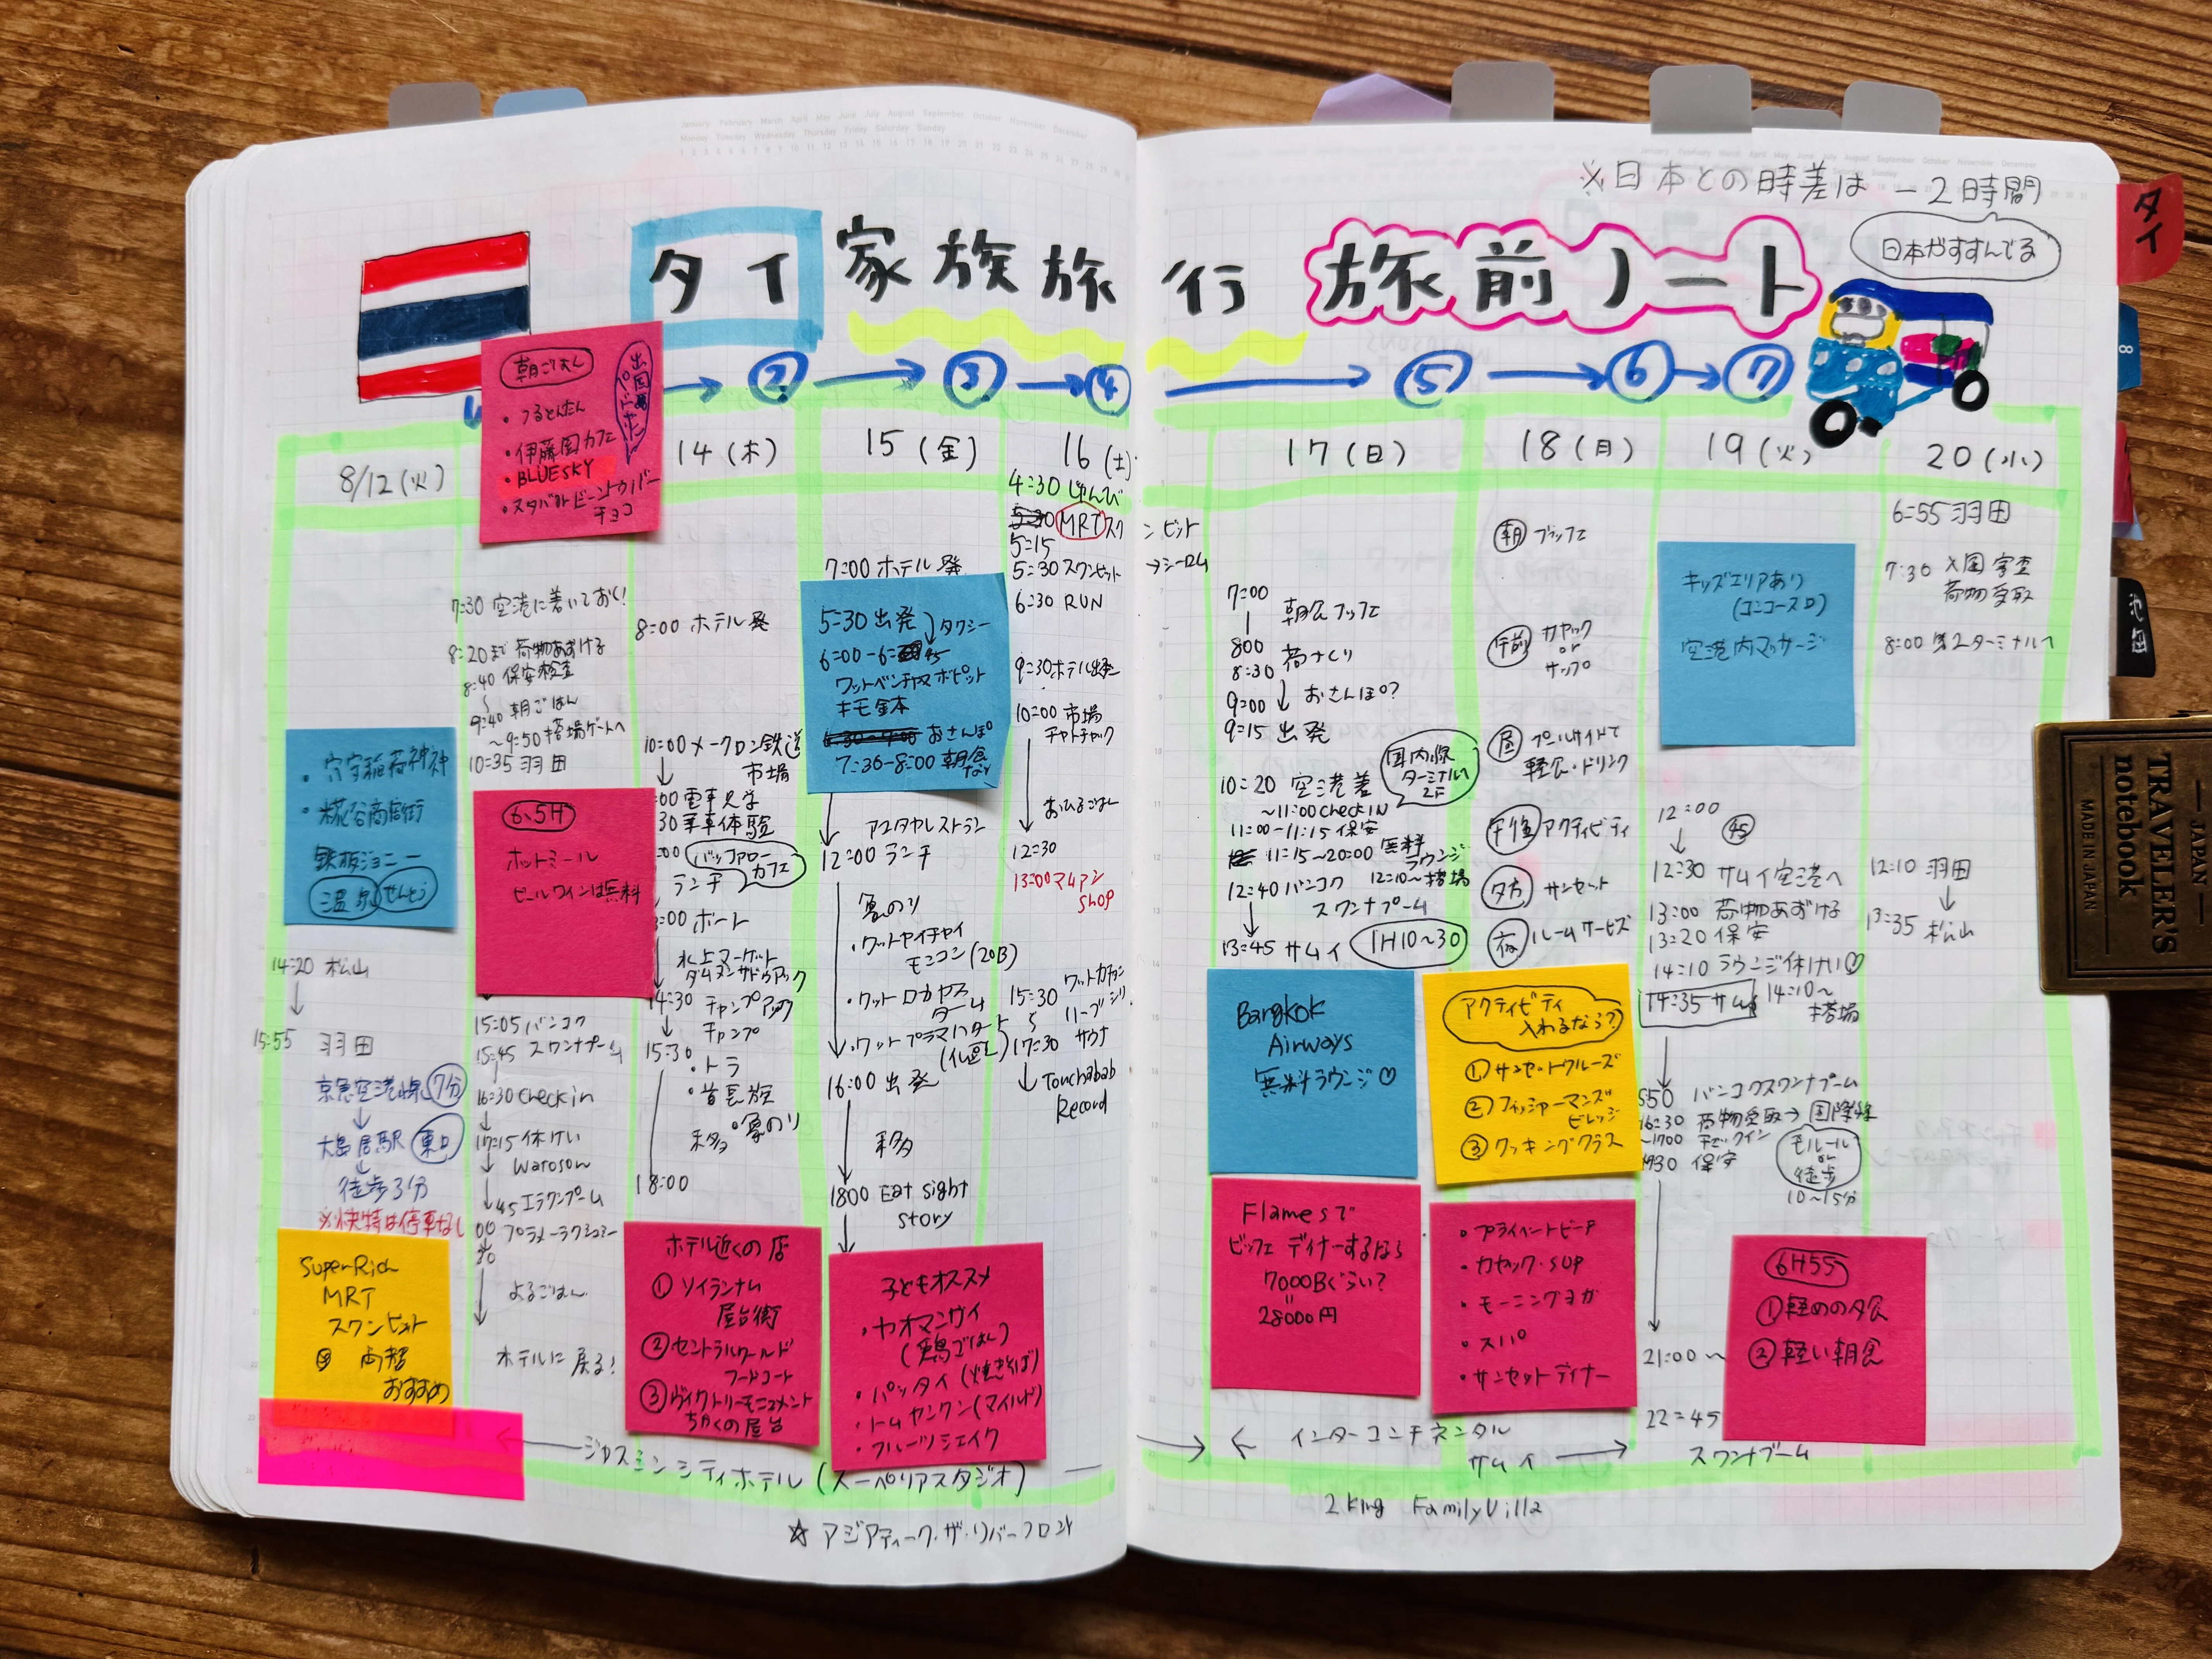 ※日本との時差は －2時間
日本がすすんでる
タイ 家族旅行 旅前ノート
② ③ ④ ⑤ ⑥ ⑦
タイ
8
池田
TRAVELER'S
notebook
MADE IN JAPAN
JAPAN
8/12(火)
・穴守稲荷神社
・糀谷商店街
鉄板ジョニー
温泉 せんとう
14:20 松山
15:55 羽田
京急空港線 7分
大鳥居駅 東口
徒歩3分
※快特は停車なし
SuperRich
MRT
スクンビット
両替
おすすめ
朝ごはん
・つるとんたん
・伊藤園カフェ
・BLUESKY
・スタバ
チョコ
7:30 空港に着いておく!
8:20まで 荷物あずける
8:40 保安検査
9:40 朝ごはん
～9:50 搭場ゲートへ
10:35 羽田
6.5H
ホットミール
ビールワインは無料
15:05 バンコク
15:45 スワンナプーム
16:30 check in
17:15 休けい
45 エラワンプーム
よるごはん
ホテルに戻る!
14(木)
8:00 ホテル発
10:00 メークロン鉄道
市場
00 電車見学
30 乗車体験
:00 バッファロー
カフェ
ランチ
:00 ボート
水上マーケット
ダムヌンサドゥアック
14:30 チャンプアック
チャンプ
15:30
・トラ
・首長族
・象のり
移動
18:00
ホテル近くの店
①ソイランナム
屋台街
②セントラルワールド
フードコート
③ヴィクトリーモニュメント
ちかくの屋台
15(金)
7:00 ホテル発
5:30 出発
タクシー
6:00-6:45
ワットベンチャマボピット
おさんぽ
7:30-8:00 朝食
アユタヤレストラン
12:00 ランチ
象のり
・ワットヤイチャイ
モンコン(20B)
・ワット ロカヤス
ターム
・ワット プラマハタート
16:00 出発
移動
1800 Eat sight
story
子どもオススメ
・カオマンガイ
(鶏ごはん)
・パッタイ(焼きそば)
・トムヤンクン(マイルド)
・フルーツシェイク
16(土)
4:30 じゅんび
5:30 MRT スクンビット
5:15 →シーロム
5:30 スクンビット
6:30 RUN
9:30 ホテル出発
10:00 市場
チャトチャック
おひるごはん
12:30
13:00 マムアン
shop
15:30
17:30 サウナ
Touchabab
Record
←ジャスミンシティホテル(スーペリアスタジオ)→
☆アジアティーク・ザ・リバーフロント
17(日)
7:00
朝食ブッフェ
800
8:30 荷づくり
9:00 おさんぽ?
9:15 出発
国内線
ターミナルへ
2F
10:20 空港着
～11:00 check IN
11:00-11:15 保安
11:15～20:00 無料
ラウンジ
12:10～搭場
12:40 バンコク
スワンナプーム
13:45 サムイ 1H10～30
Bangkok
Airways
無料ラウンジ♡
Flamesで
ビッフェ ディナーするなら
7000Bぐらい?
28000円
18(月)
朝 ブッフェ
午前 カヤック
or
サップ
昼 プールサイドで
軽食・ドリンク
午後 アクティビティ
夕方 サンセット
夜 ルームサービス
アクティビティ
入れるなら?
①サンセットクルーズ
②フィッシャーマンズ
ビレッジ
③クッキングクラス
・プライベートビーチ
・カヤック・SUP
・モーニングヨガ
・スパ
・サンセットディナー
←インターコンチネンタル
サムイ→
2 King Family Villa
19(火)
キッズエリアあり
(コンコースD)
空港内マッサージ
12:00
45
12:30 サムイ空港へ
13:00 荷物あずける
13:20 保安
14:10 ラウンジ休けい♡
14:35 サムイ 14:10～
搭場
550 バンコクスワンナプーム
16:30 荷物受取→国際線
～1700 チェックイン
保安
モノレール
or
徒歩
10～15分
6H55
①軽めの夕食
②軽い朝食
21:00～
22:45
スワンナプーム
20(水)
6:55 羽田
7:30 入国審査
荷物受取
8:00 第2ターミナルへ
12:10 羽田
13:35 松山